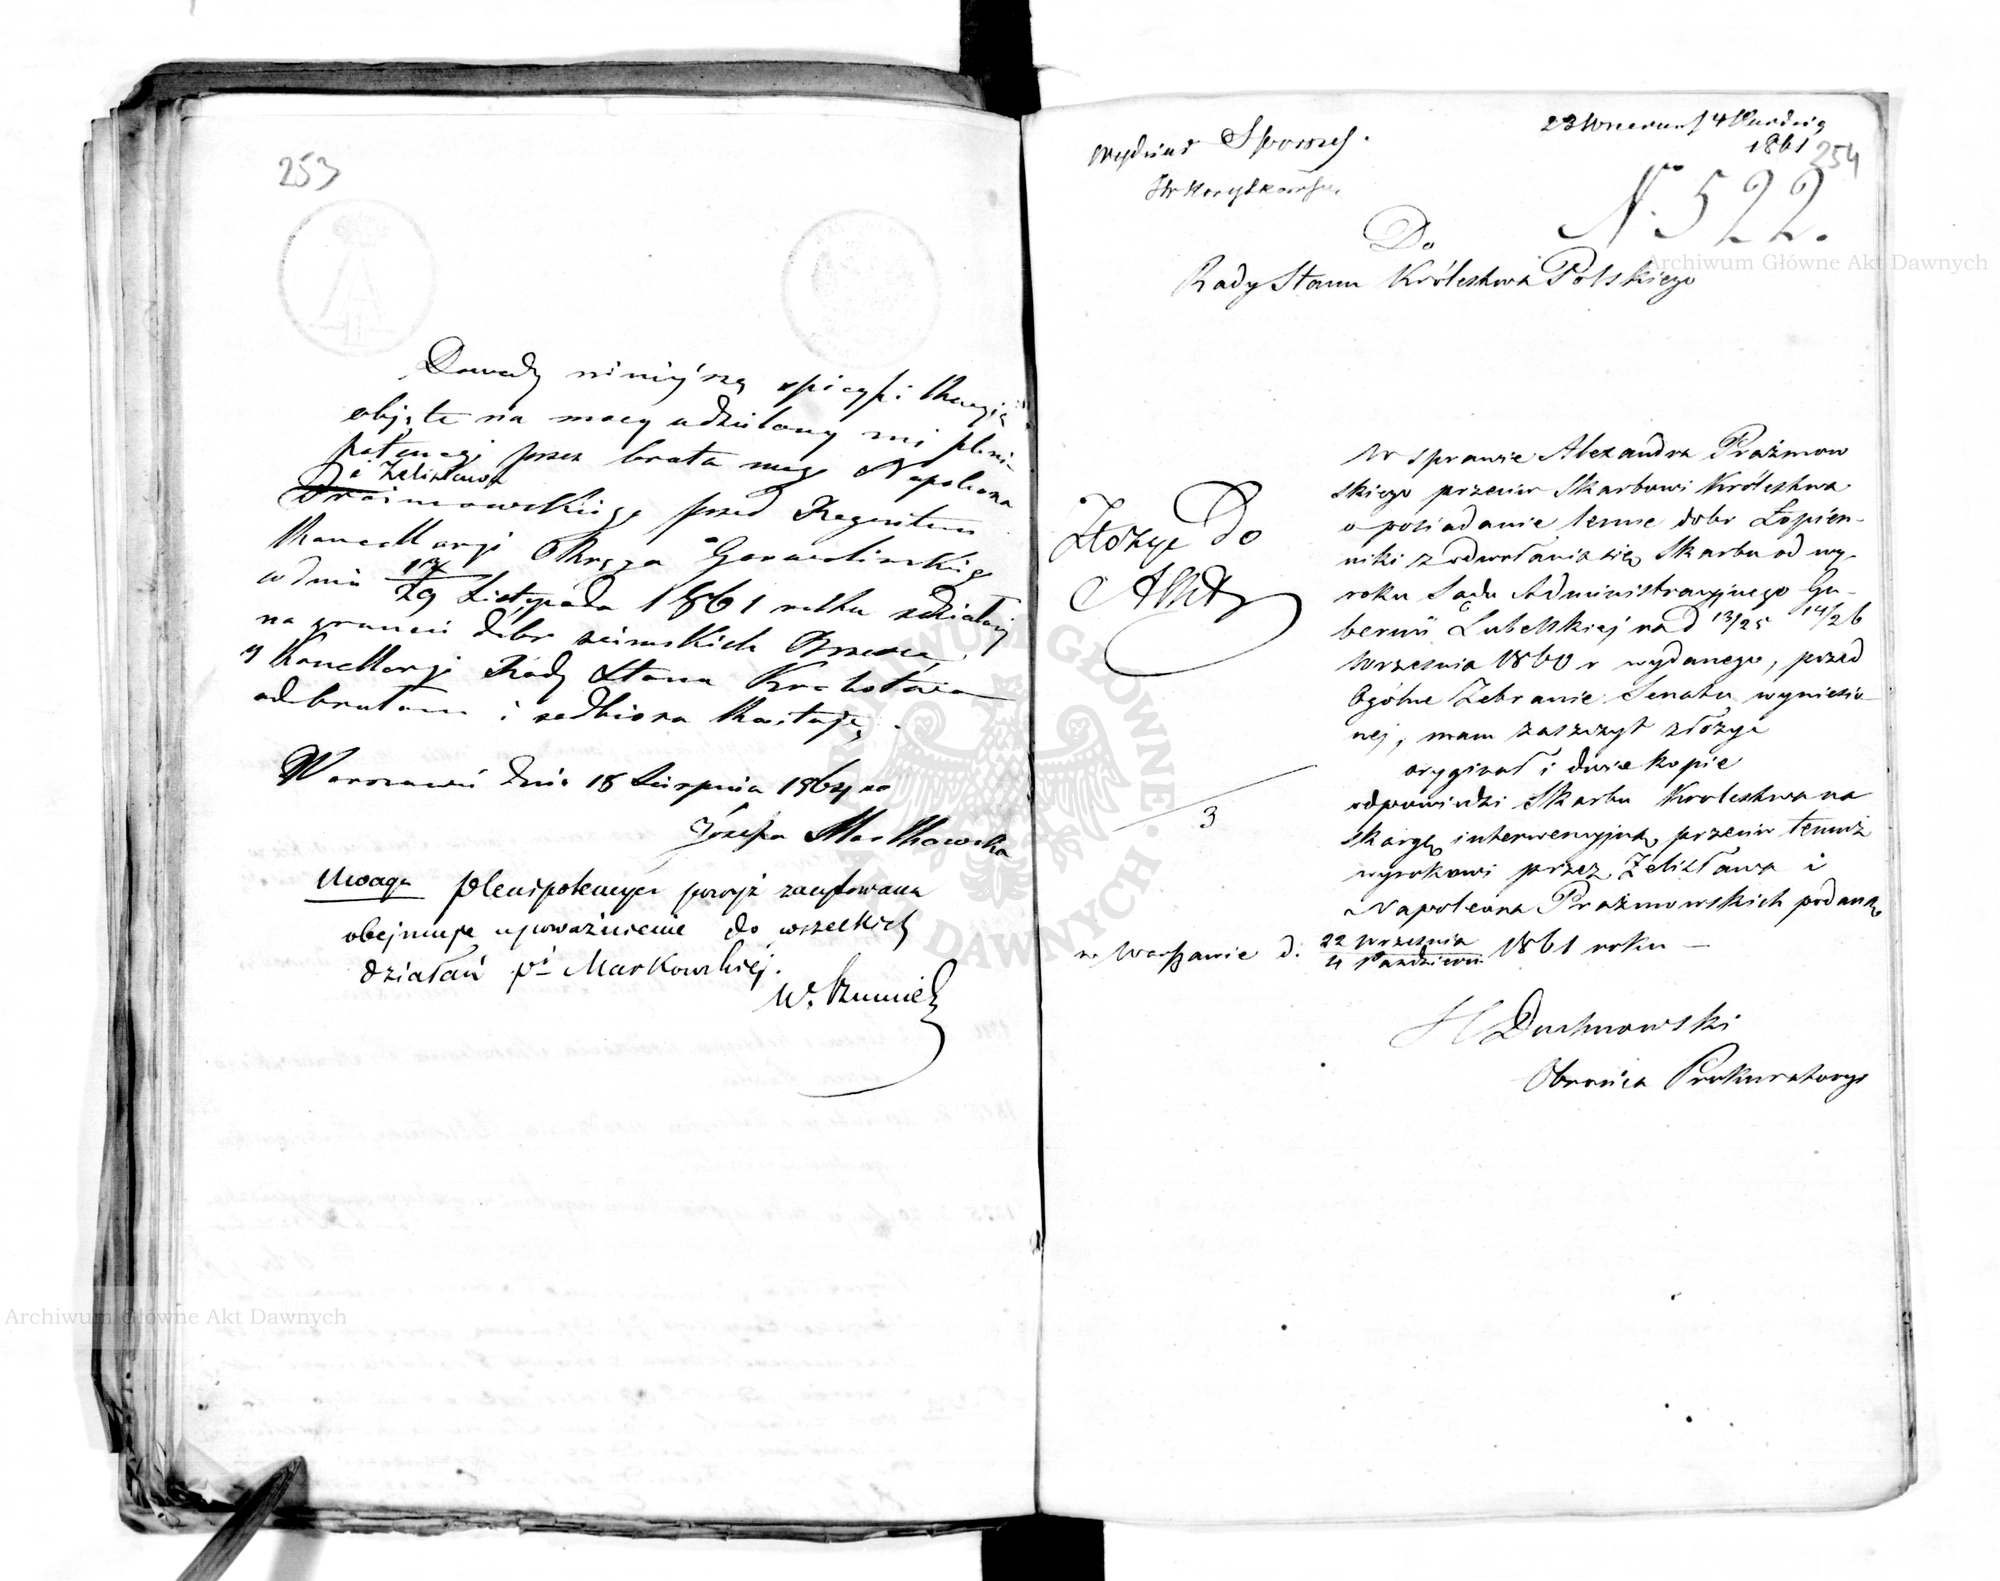 253
Dowody niniejszą specyfikacyją
objęte na mocy udzielonej mi pleni-
potencyi przez brata mego Napoleona
i Zelisława
Prażmowskiego przed Regentem
Kancellaryi Okręgu Garwolińskiego
w dniu 17/29 Listopada 1861 roku zdziałanej
na gruncie dóbr ziemskich
z Kancellaryi Rady Stanu Królestwa
odebrałam i z odbioru kwituję.
Warszawa dnia 18 Sierpnia 1864 ro
Józefa Markowska
Uwaga plenipotencya powyż zacytowana
obejmuje upoważnienie do wszelkich
działań pi Markowskiej.
W.
254
Wydział Sporny.
23 Wrześnn / 4 Paździe
1861
N. 522.
Do
Rady Stanu Królestwa Polskiego
W sprawie Alexandra Prażmow
skiego przeciw Skarbowi Królestwa
o posiadanie lenne dobr Łopien-
niki z odwołania się Skarbu od wy-
roku Sądu Administracyjnego Gu-
bernii Lubelskiej na d 13/25 14/26
Września 1860 r wydanego, przed
Ogólne Zebranie Senatu wyniesio-
nej, mam zaszczyt złożyć
oryginał i dwie kopie
odpowiedzi Skarbu Królestwa na
skargę interwencyjną przeciw temuż
wyrokowi przez Zelisława i
Napoleona Prażmowskich podaną
w Warszawie d. 22 Września / 4 Paździer. 1861 roku —
H Duchnowski
Obrońca Prokuratoryi
Złożyć Do
Akt
3
Archiwum Główne Akt Dawnych
Archiwum Główne Akt Dawnych
ARCHIWUM GŁÓWNE AKT DAWNYCH